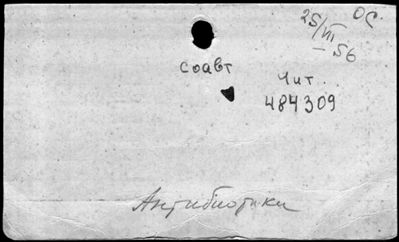 ОС
25/VII
— 56
соавт
Чит
484309
Антибиотики